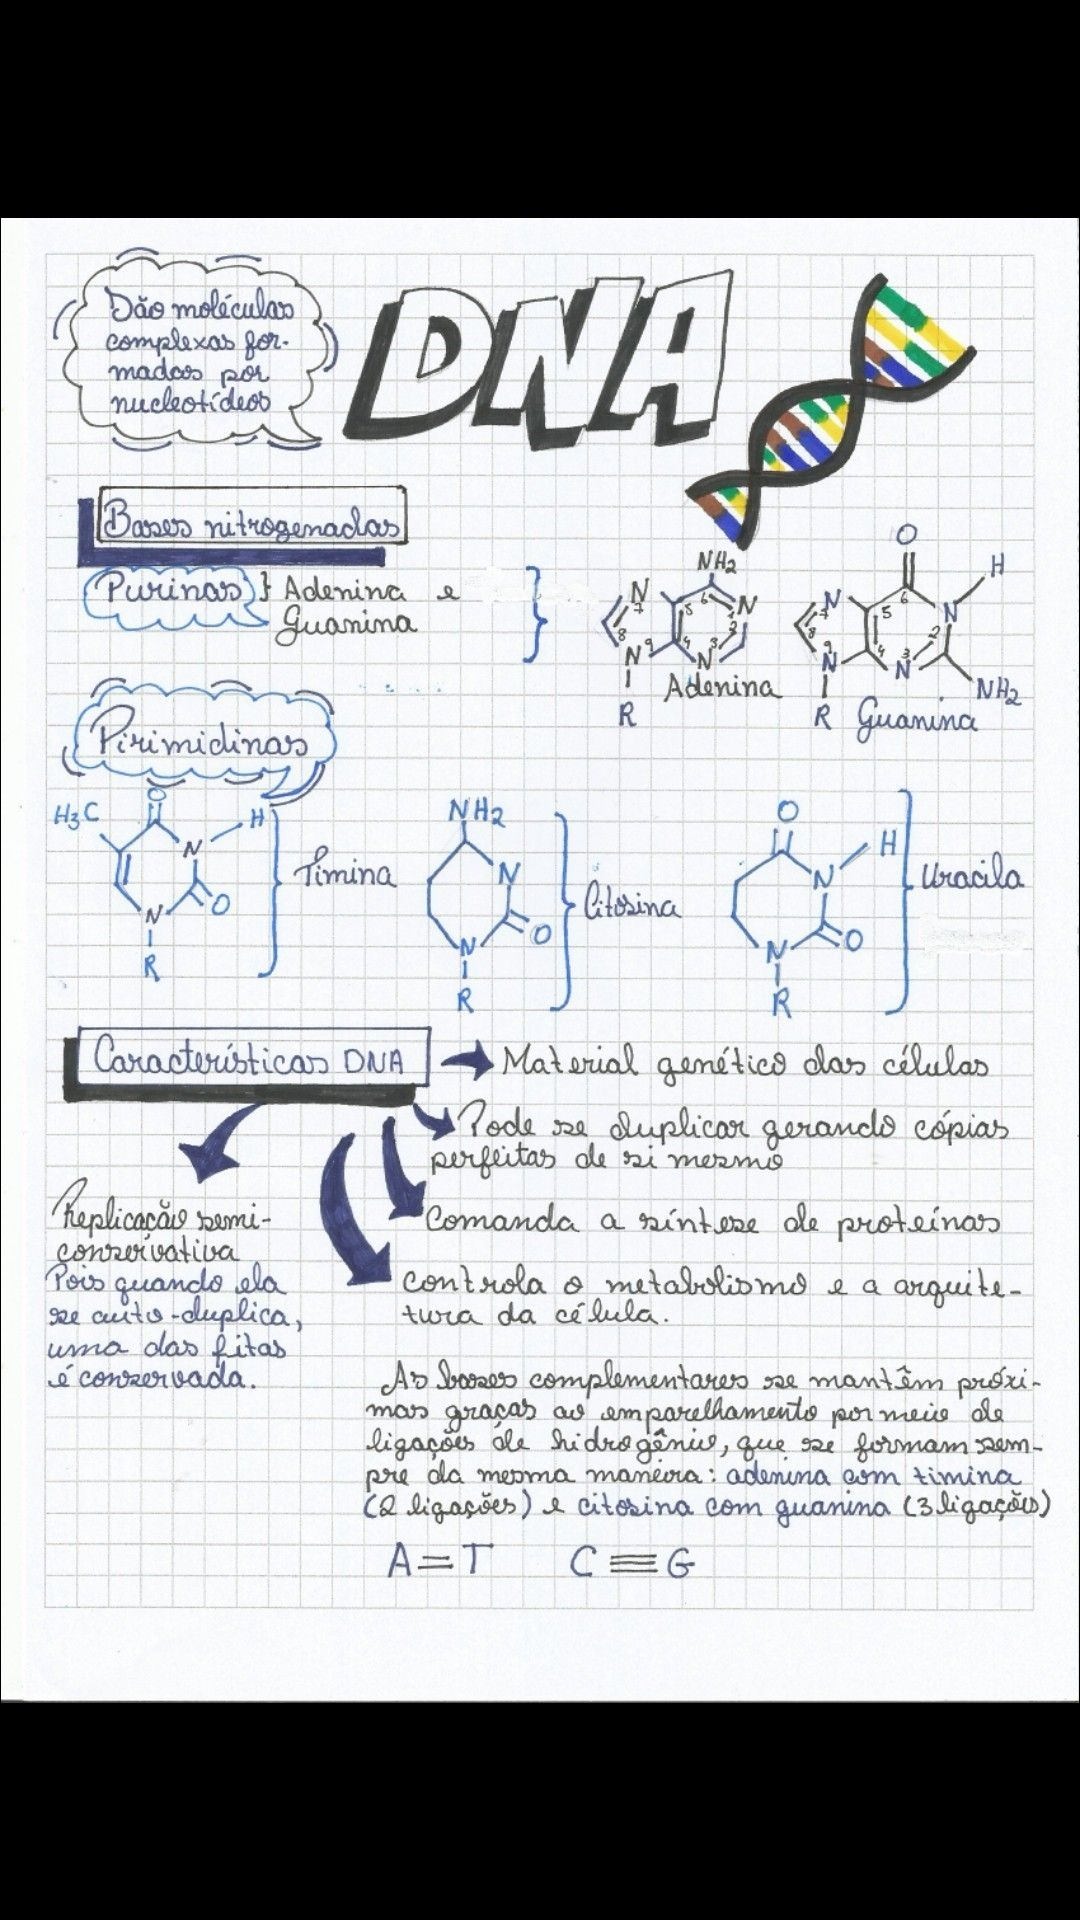 São moléculas
complexas for-
madas por
nucleotídeos
DNA
Bases nitrogenadas
Purinas } Adenina e
Guanina
NH2
N
7
5
6
N
1
8
9
4
3
2
N
N
R
Adenina
O
H
N
7
5
6
N
8
9
4
3
2
N
N
NH2
R
Guanina
Pirimidinas
H3C
O
N
H
N
O
R
Timina
NH2
N
N
O
R
Citosina
O
H
N
N
O
R
Uracila
Características DNA
Material genético das células
Pode se duplicar gerando cópias
perfeitas de si mesmo
Comanda a síntese de proteínas
controla o metabolismo e a arquite-
tura da célula.
Replicação semi-
conservativa
Pois quando ela
se auto-duplica,
uma das fitas
é conservada.
As bases complementares se mantêm próxi-
mas graças ao emparelhamento por meio de
ligações de hidrogênio, que se formam sem-
pre da mesma maneira: adenina com timina
(2 ligações) e citosina com guanina (3 ligações)
A=T C≡G